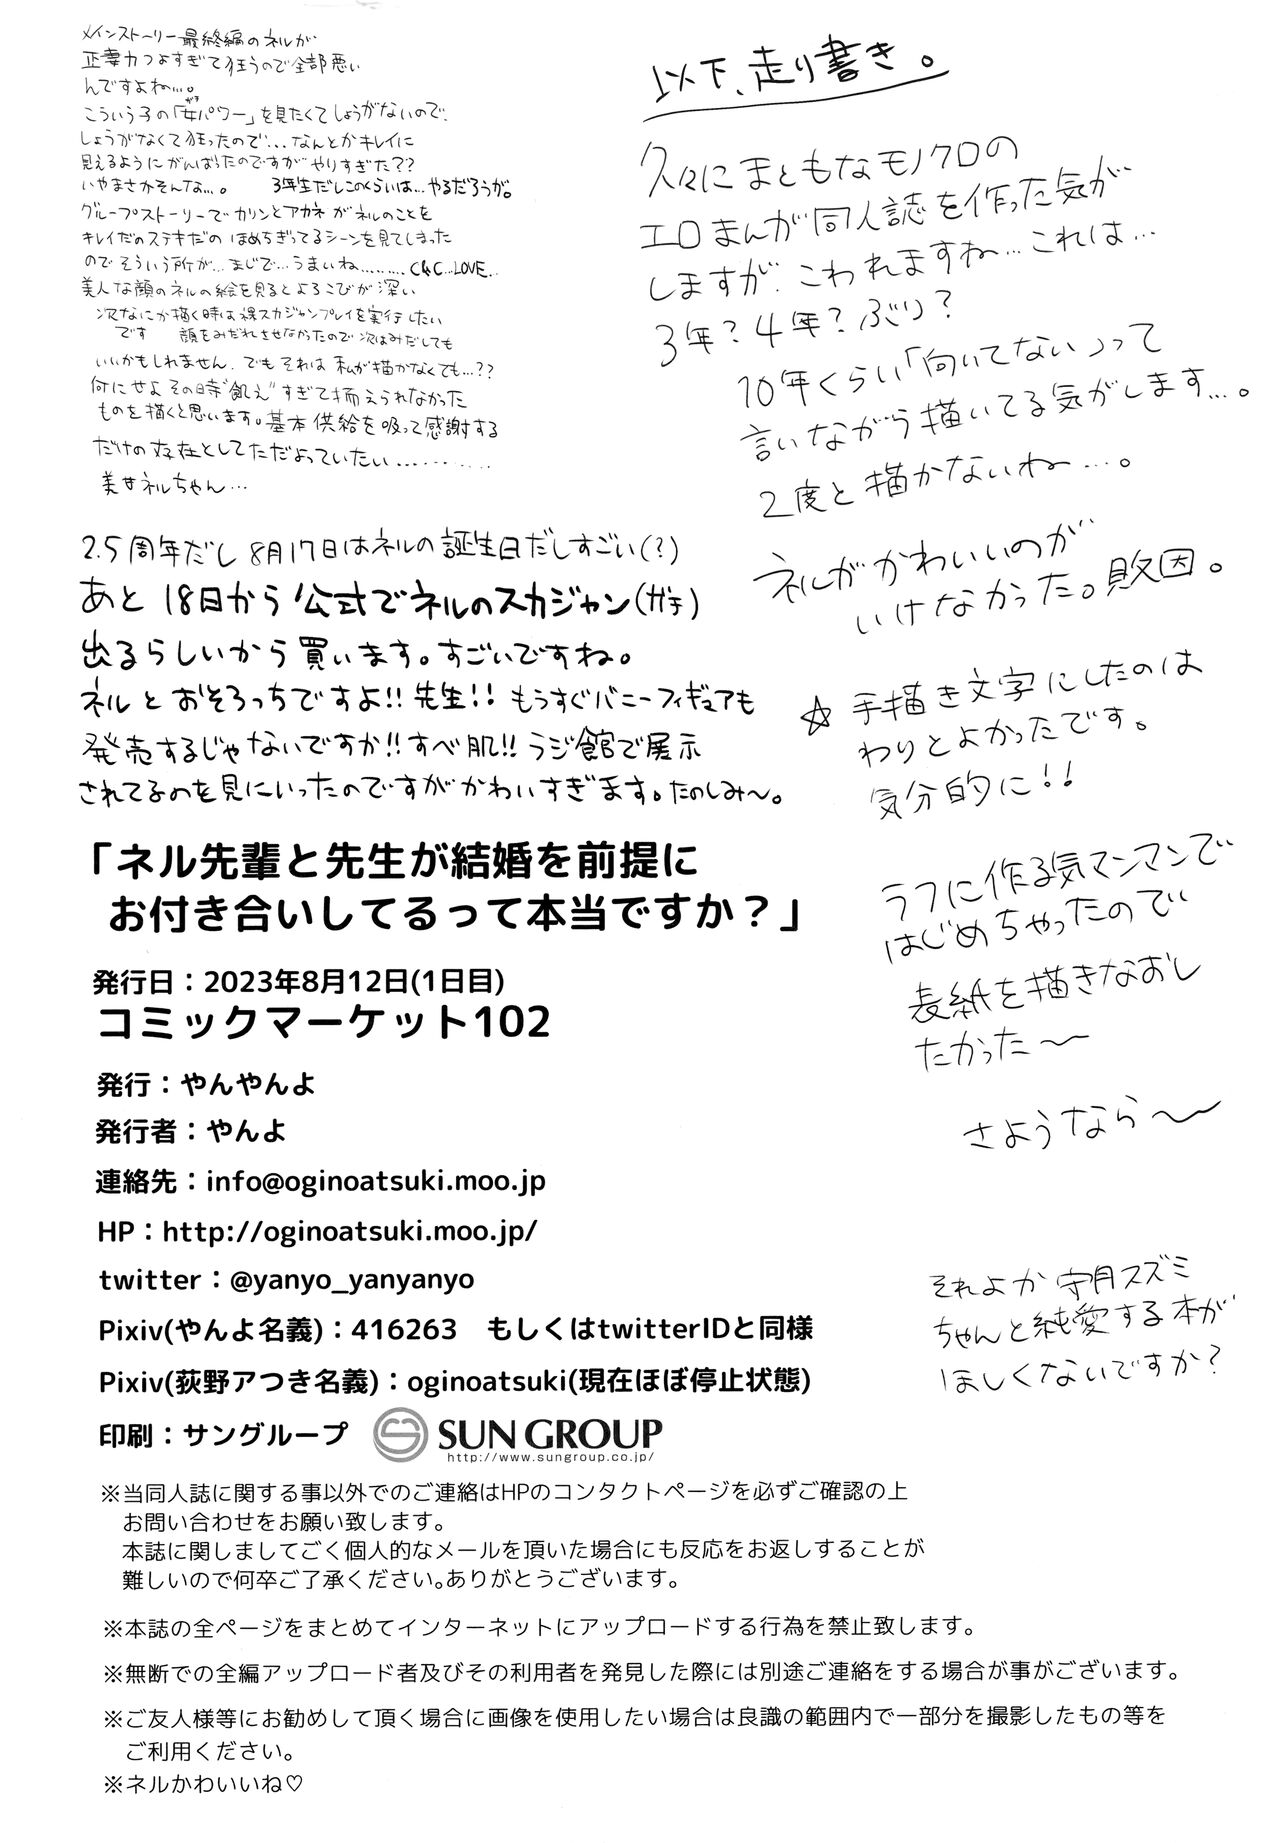 メインストーリー最終編のネルが
正妻力つよすぎて狂うので全部悪い
んですよね…。
こういう子の「女パワー」を見たくてしょうがないので、
しょうがなくて狂ったので…なんとかキレイに
見えるようにがんばったのですがやりすぎた??
いやまさかそんな…。 3年生だしこのくらいは…やるだろうが。
グループストーリーでカリンとアカネがネルのことを
キレイだのステキだの ほめちぎってるシーンを見てしまった
のでそういう所が…まじで…うまいね………C&C…LOVE…
美人な顔のネルの絵を見るとよろこびが深い
次なにか描く時は裸スカジャンプレイを実行したい
です 顔をみだれさせなかったので次はみだしても
いいかもしれません、でもそれは 私が描かなくても…??
何にせよその時"飢え"すぎて揃えられなかった
ものを描くと思います。基本供給を吸って感謝する
だけの存在としてただよっていたい…………
美女ネルちゃん…
2.5周年だし8月17日はネルの誕生日だしすごい(?)
あと18日から公式でネルのスカジャン(ガチ)
出るらしいから買います。すごいですね。
ネルとおそろっちですよ!!先生!! もうすぐバニーフィギュアも
発売するじゃないですか!!すべ肌!!ラジ館で展示
されてるのを見にいったのですがかわいすぎます。たのしみ〜。
以下、走り書き。
久々にまともなモノクロの
エロまんが同人誌を作った気が
しますが、こわれますね…これは…
3年?4年?ぶり?
10年くらい「向いてない」って
言いながら描いてる気がします…。
2度と描かないね…。
ネルがかわいいのが
いけなかった。敗因。
☆手描き文字にしたのは
わりとよかったです。
気分的に!!
ラフに作る気マンマンで
はじめちゃったので
表紙を描きなおし
たかった〜
さようなら〜
それよか 守月スズミ
ちゃんと純愛する本が
ほしくないですか?
「ネル先輩と先生が結婚を前提に
お付き合いしてるって本当ですか？」
発行日：2023年8月12日(1日目)
コミックマーケット102
発行：やんやんよ
発行者：やんよ
連絡先：info@oginoatsuki.moo.jp
HP：http://oginoatsuki.moo.jp/
twitter：@yanyo_yanyanyo
Pixiv(やんよ名義)：416263　もしくはtwitterIDと同様
Pixiv(荻野アつき名義)：oginoatsuki(現在ほぼ停止状態)
印刷：サングループ SUN GROUP
http://www.sungroup.co.jp/
※当同人誌に関する事以外でのご連絡はHPのコンタクトページを必ずご確認の上
お問い合わせをお願い致します。
本誌に関しましてごく個人的なメールを頂いた場合にも反応をお返しすることが
難しいので何卒ご了承ください。ありがとうございます。
※本誌の全ページをまとめてインターネットにアップロードする行為を禁止致します。
※無断での全編アップロード者及びその利用者を発見した際には別途ご連絡をする場合が事がございます。
※ご友人様等にお勧めして頂く場合に画像を使用したい場合は良識の範囲内で一部分を撮影したもの等を
ご利用ください。
※ネルかわいいね♡